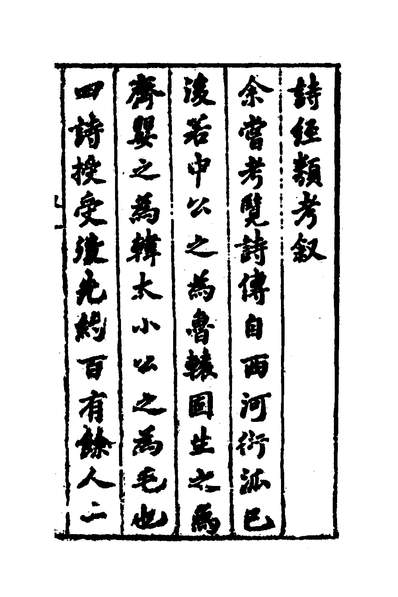 詩經類考叙
余嘗考覽詩傳自西河衍泒已
後若申公之為魯轅固生之為
齊嬰之為韓大小公之為毛也
四詩授受後先約百有餘人二